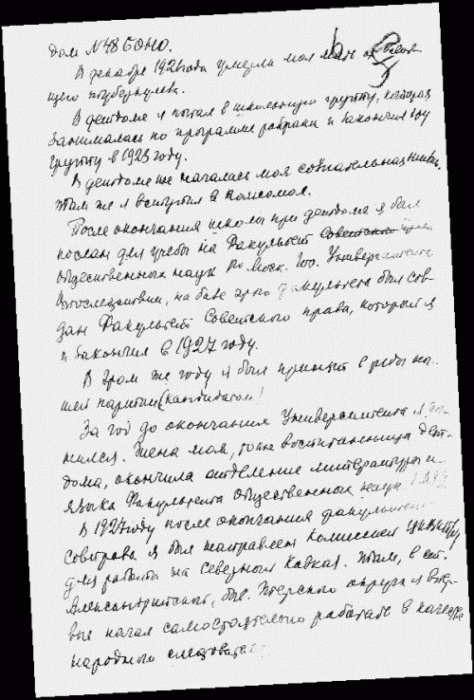 дом №48 БОНО.
В декабре 1921 года умерла моя мать от
щего туберкулеза.
В детдоме я попал в школьную группу, которая
занималась по программе рабфака и закончил эту
группу в 1923 году.
В детдоме же началась моя сознательная жизнь.
Там же я вступил в комсомол.
После окончания школы при детдоме я был
послан для учебы на Факультет Советского права
общественных наук Моск. Гос. Университета
Впоследствии, на базе этого факультета был соз-
дан Факультет Советского права, который я
и закончил в 1927 году.
В этом же году я был принят в ряды на-
шей партии (кандидатом)
За год до окончания Университета я же-
нился. Жена моя, тоже воспитанница дет-
дома, окончила отделение литературы и
языка Факультета Общественных наук
В 1927 году после окончания факультета
совправа я был направлен Комиссией
для работы на Северный Кавказ. Там, в ст.
Александрийской, Терского округа я впер-
вые начал самостоятельно работать в качестве
народного следователя